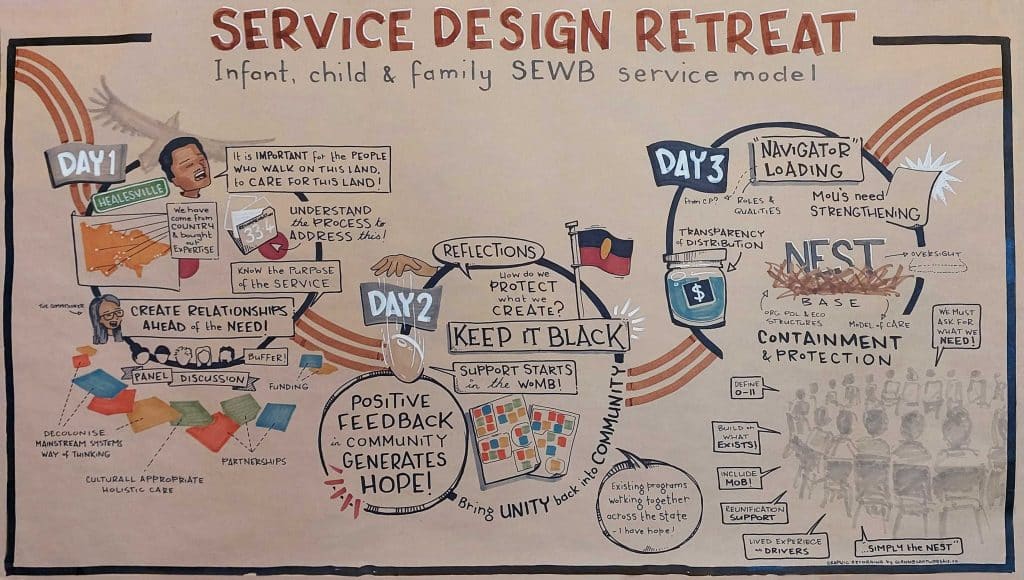 SERVICE DESIGN RETREAT
Infant, child & family SEWB service model
DAY 1
HEALESVILLE
It is IMPORTANT for the PEOPLE
WHO WALK ON THIS LAND,
to CARE FOR THIS LAND!
We have
come from
COUNTRY
& bought
our
EXPERTISE
33.4
UNDERSTAND
the PROCESS to
ADDRESS this!
KNOW the PURPOSE
of the SERVICE
THE COMMISSIONER
CREATE RELATIONSHIPS
AHEAD of the NEED!
BUFFER!
PANEL DISCUSSION
FUNDING
DECOLONISE
MAINSTREAM SYSTEMS
WAY OF THINKING
PARTNERSHIPS
CULTURALLY APPROPRIATE
HOLISTIC CARE
DAY 2
REFLECTIONS
HOW do we
PROTECT
what we
CREATE?
KEEP IT BLACK
SUPPORT STARTS
in the WOMB!
POSITIVE
FEEDBACK
in COMMUNITY
GENERATES
HOPE!
Bring UNITY back into COMMUNITY
Existing programs
working together
across the state
- I have hope!
DAY 3
"NAVIGATOR"
LOADING
From CP?
ROLES &
QUALITIES
MOU's need
STRENGTHENING
TRANSPARENCY
of DISTRIBUTION
$
NEST
OVERSIGHT
BASE
ORG POL & ECO
STRUCTURES
MODEL of CARE
CONTAINMENT
& PROTECTION
WE MUST
ASK FOR
WHAT WE
NEED!
DEFINE
0-11
BUILD on
WHAT
EXISTS!
INCLUDE
MOB!
REUNIFICATION
SUPPORT
LIVED EXPERIECE
as DRIVERS
"SIMPLY the NEST"